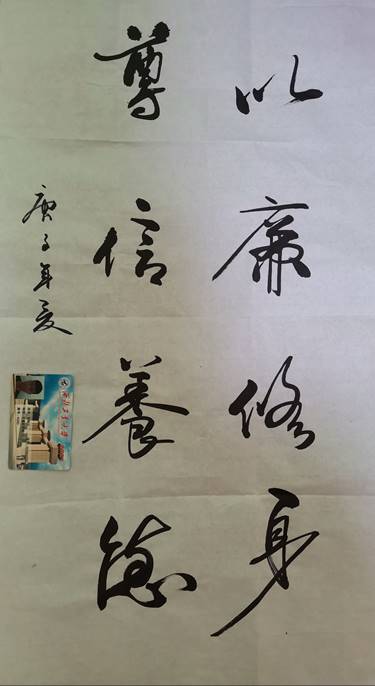 以廉修身
尊信養德
庚子年夏